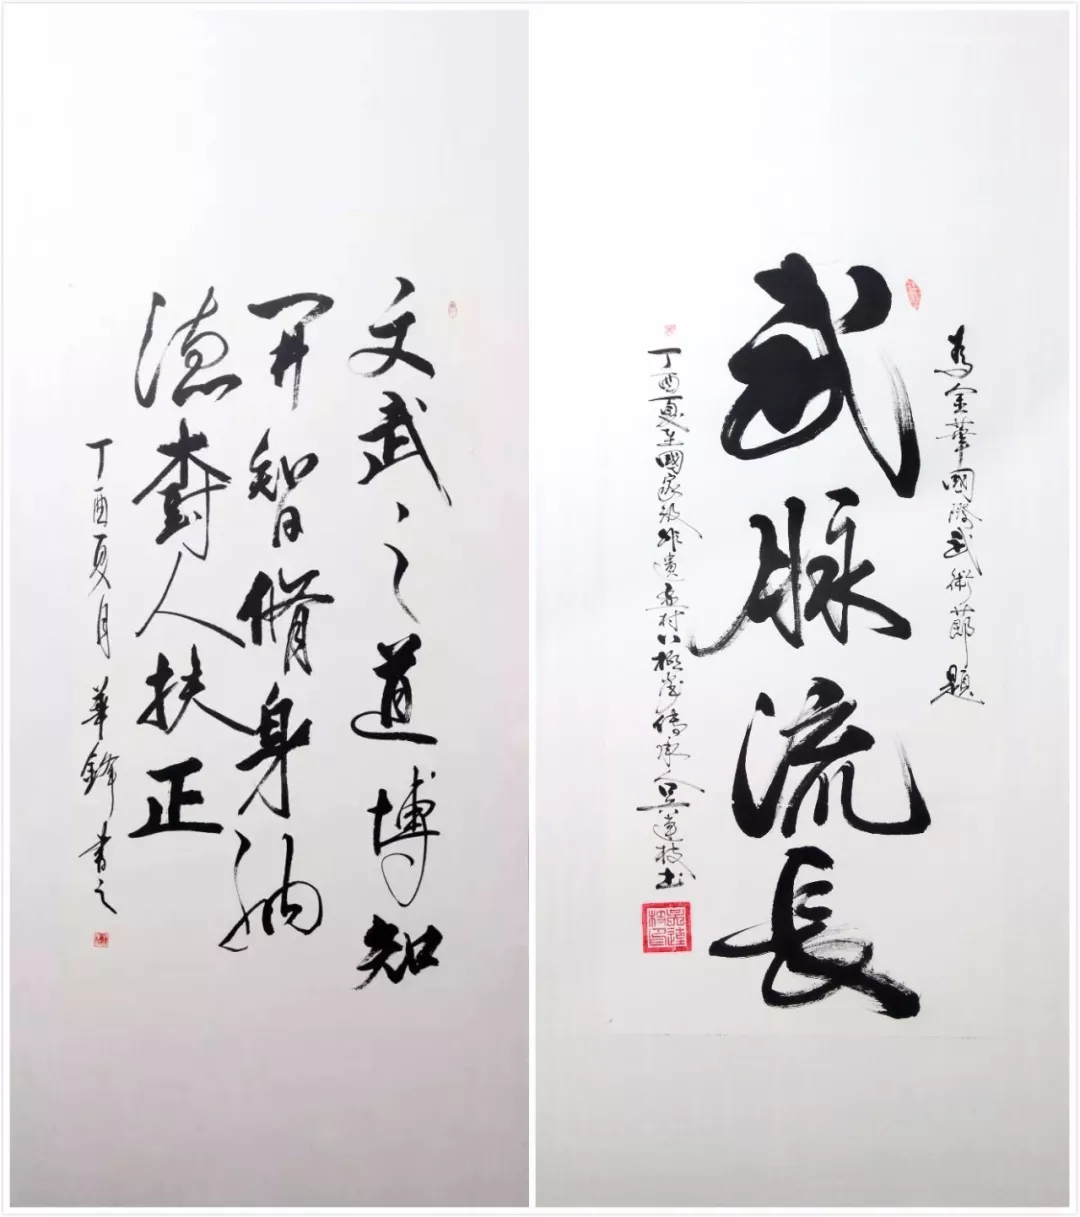 文武之道博知
开智脩身納
德樹人扶正
丁酉夏月 華鋒書之
為金華國際武術節題
武脈流長
丁酉夏至國家級非遺孟村八極拳傳承人吳連枝书